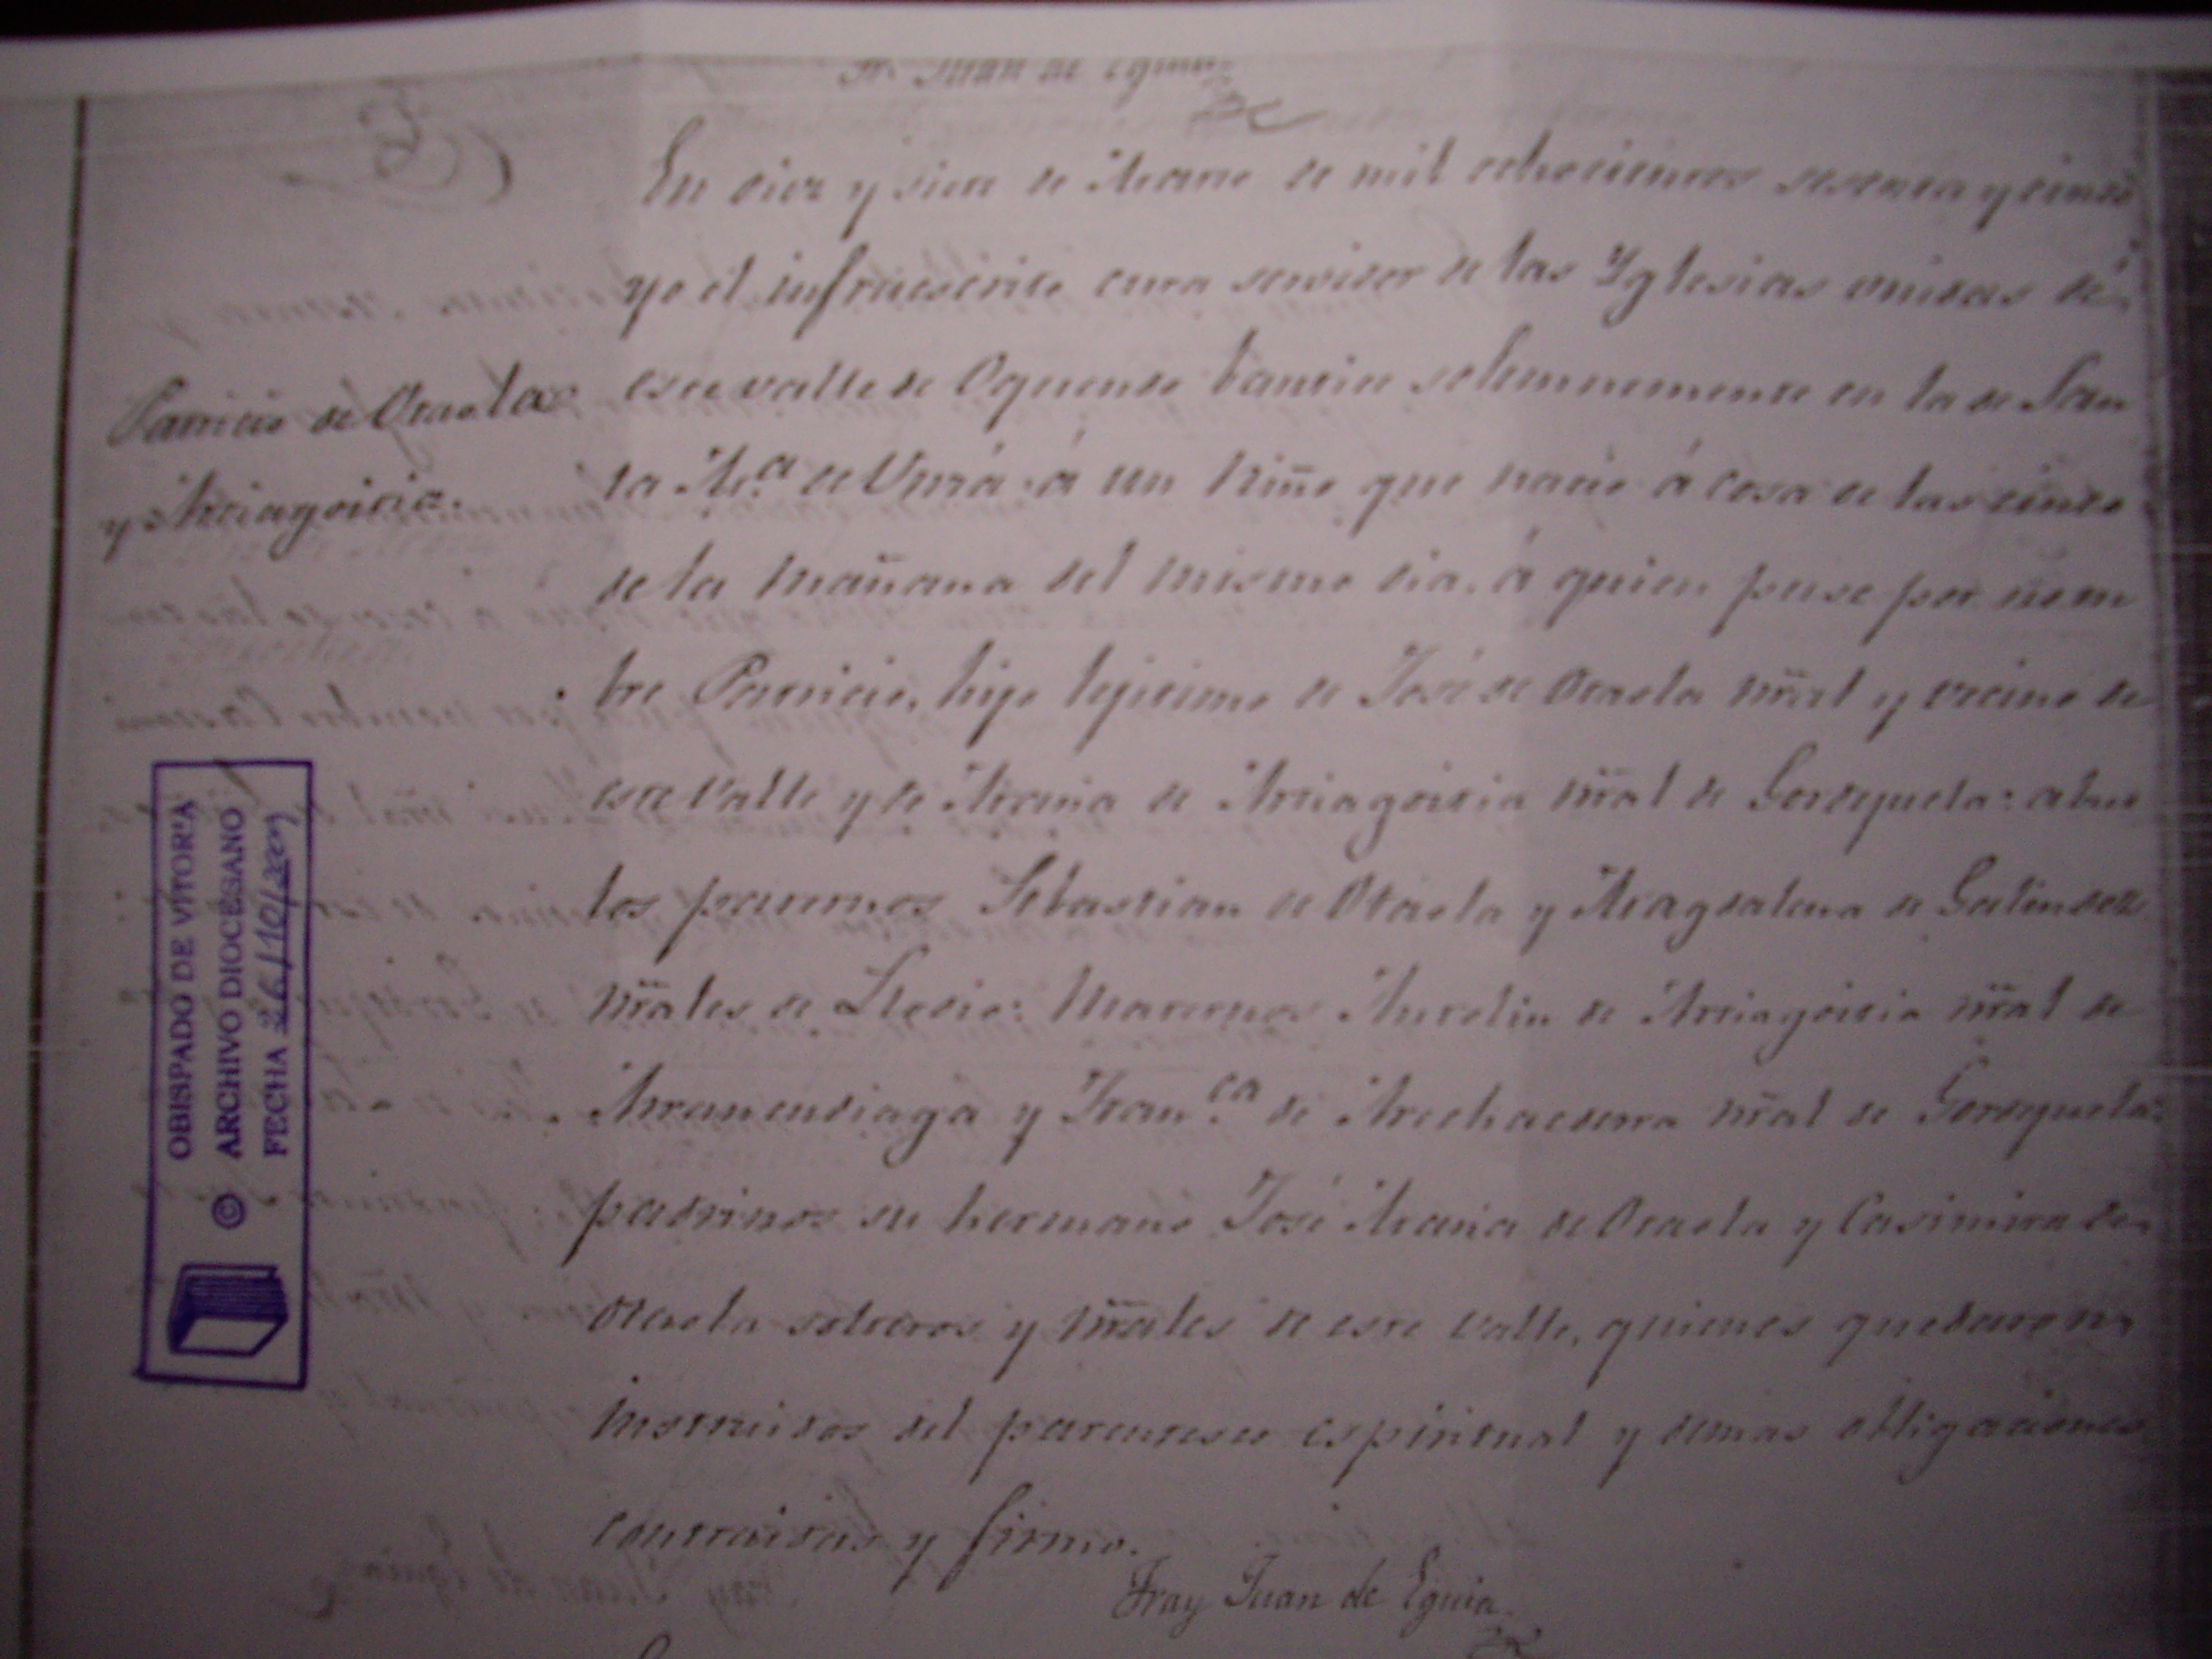 Fr. Juan de Eguia
En diez y siete de Marzo de mil ochocientos sesenta y cinco
yo el infraescrito cura servidor de las Yglesias unidas de
este valle de Oquendo bautice solemnemente en la de San
ta Ma. de Unzá á un Niño que nacio á cosa de las cinco
de la mañana del mismo dia, á quien puse por nom
bre Patricio, hijo legitimo de José de Otaola nral y vecino de
este valle y de Maria de Arriagoitia nral de Gordejuela: abue
los paternos Sebastian de Otaola y Magdalena de Galindez
nrales de Llodio: Maternos de Arriagoitia nral de
y Franca. de Arechaederra nral de Gordejuela:
padrinos su hermano José Maria de Otaola y Casimira de
Otaola solteros y nrales de este valle, quienes quedaron
instruidos del parentesco espiritual y demas obligaciones
contraidas y firmo.
Fray Juan de Eguia.
Patricio de Otaola
y Arriagoitia.
OBISPADO DE VITORIA
© ARCHIVO DIOCESANO
FECHA 26/10/2009